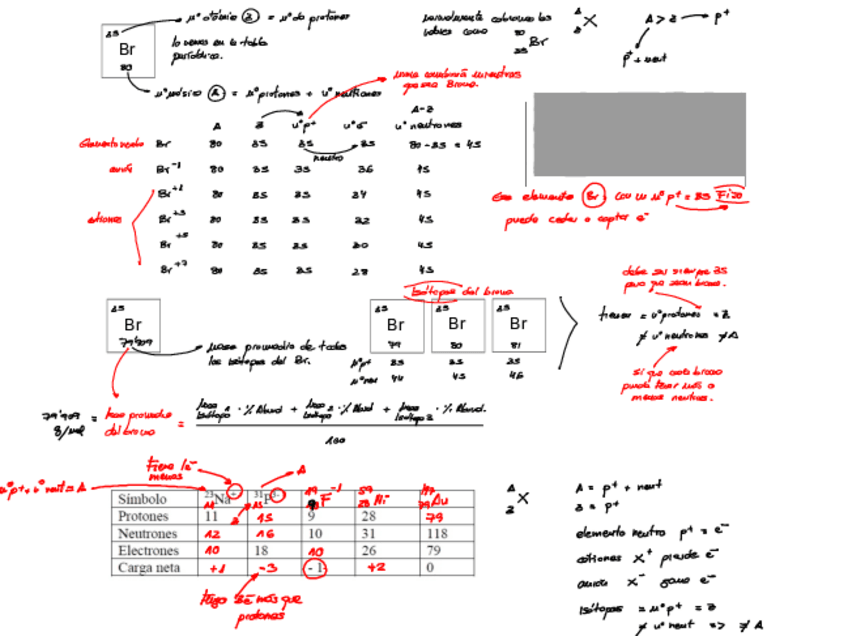 35
Br
80
nº atómico (Z) = nº de protones
lo vemos en la tabla
periódica.
nº másico (A) = nº protones + nº neutrones
normalmente
valores como
80
Br
35
A
X
Z
A > Z → p⁺
p⁺ + neut
siempre Bromo.
A Z nº p⁺ nº e⁻ nº neutrones
A-Z
Elemento neutro Br 80 35 35 35 80 - 35 = 45
neutro
anión Br⁻¹ 80 35 35 36 45
Br⁺¹ 80 35 35 34 45
cationes Br⁺³ 80 35 35 32 45
Br⁺⁵ 80 35 35 30 45
Br⁺⁷ 80 35 35 28 45
elemento (Br) con un nº p⁺ = 35 Fijo
puede ceder o captar e⁻
Isótopos del bromo
35
Br
79'909
masa promedio de todos
los isótopos del Br.
35 Br 79
35 Br 80
35 Br 81
nº p⁺ 35 35 35
nº neu 44 45 46
debe ser siempre 35
para que sean bromo.
tienen = nº protones = Z
≠ nº neutrones ≠ A
sí que cada bromo
puede tener más o
menos neutrones.
79'909
g/mol
= masa promedio
del bromo
= masa isótopo 1 · % Abund + masa isótopo 2 · % Abund + masa isótopo 3 · % Abund.
100
Tiene 1e⁻
menos
nº p⁺ + nº neut = A
A
Z
Símbolo ²³₁₁Na⁺ ³¹₁₅P³⁻ ¹⁹₉F⁻¹ ⁵⁹₂₈Ni ¹⁹⁷₇₉Au
Protones 11 15 9 28 79
Neutrones 12 16 10 31 118
Electrones 10 18 10 26 79
Carga neta +1 -3 -1 +2 0
Tengo 3e⁻ más que
protones
A
X
Z
A = p⁺ + neut
Z = p⁺
elemento neutro p⁺ = e⁻
cationes X⁺ pierde e⁻
anión X⁻ gana e⁻
Isótopos = nº p⁺ = Z
≠ nº neut => ≠ A